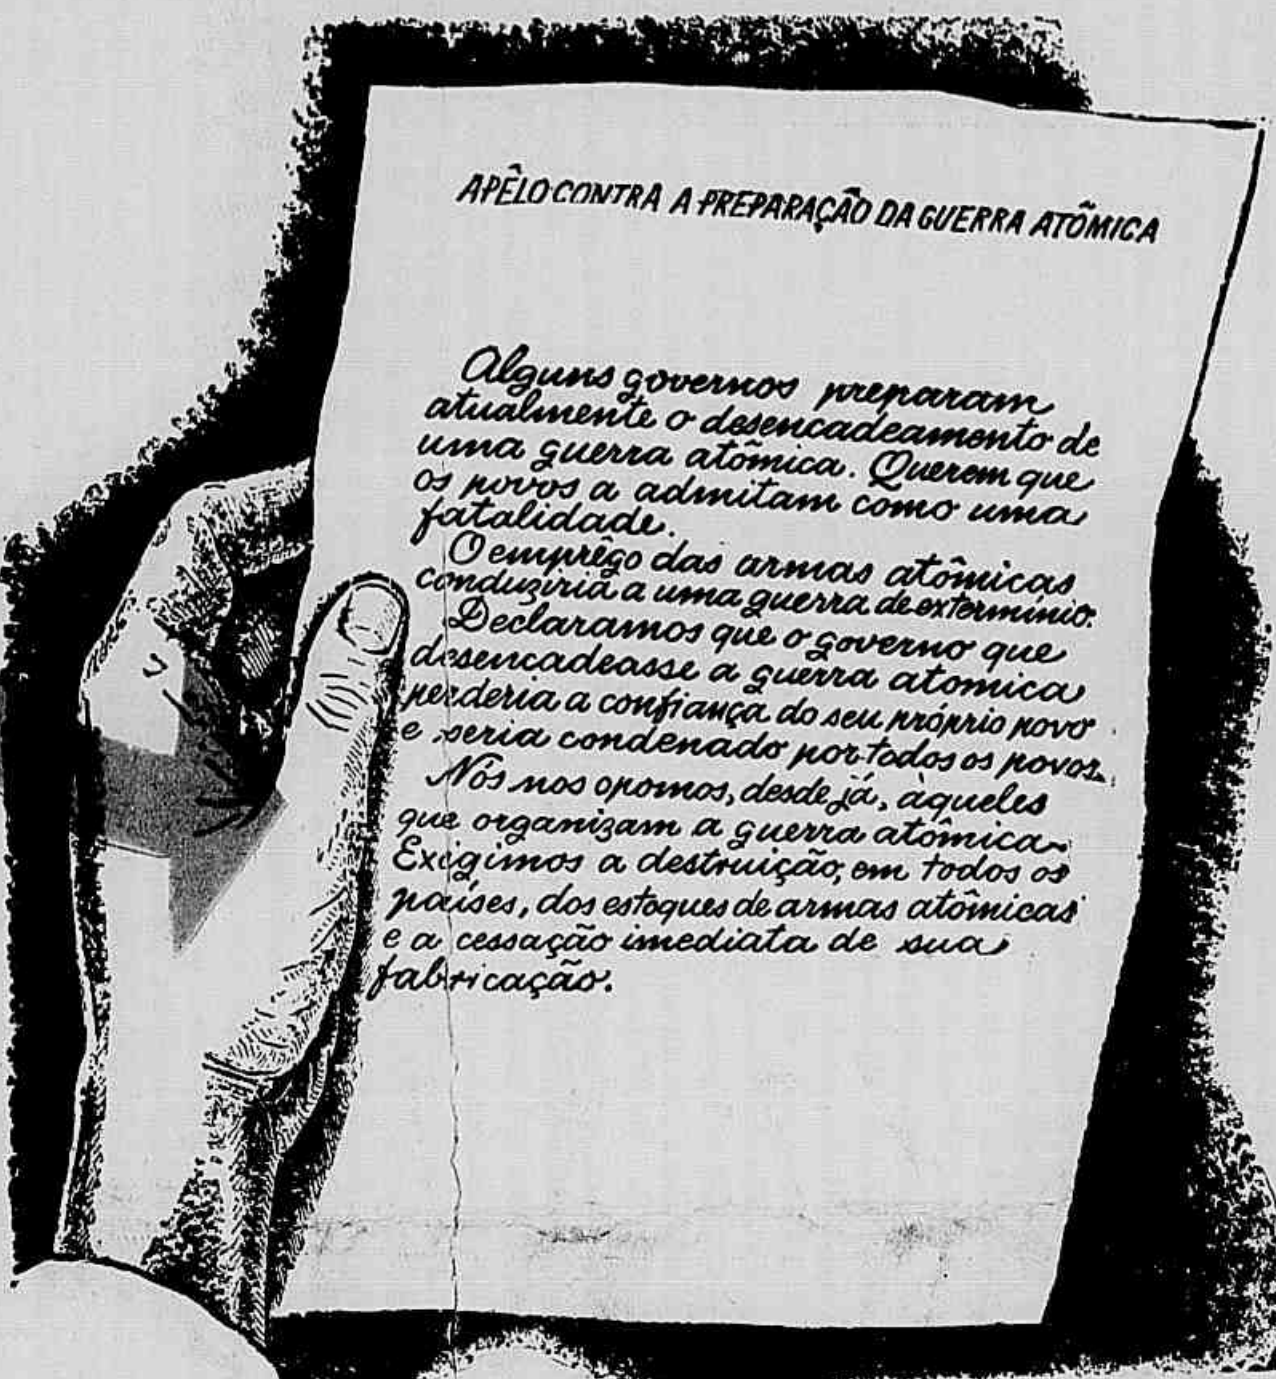 APÊLO CONTRA A PREPARAÇÃO DA GUERRA ATÔMICA
Alguns governos preparam
atualmente o desencadeamento de
uma guerra atômica. Querem que
os povos a admitam como uma
fatalidade.
O emprêgo das armas atômicas
conduziria a uma guerra de extermínio.
Declaramos que o governo que
desencadeasse a guerra atomica
perderia a confiança do seu próprio povo
e seria condenado por todos os povos.
Nós nos opomos, desde já, àqueles
que organizam a guerra atômica.
Exigimos a destruição, em todos os
países, dos estoques de armas atômicas
e a cessação imediata de sua
fabricação.